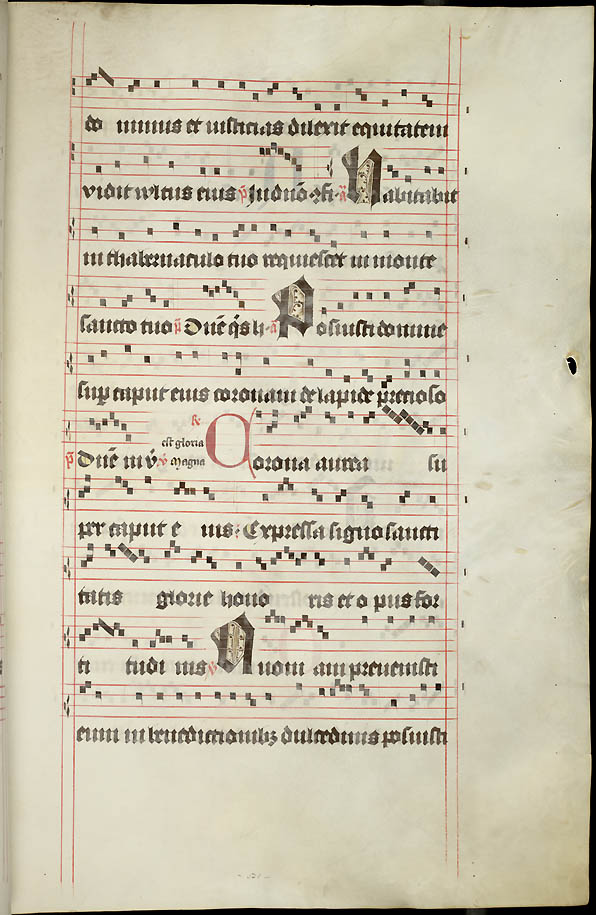 do minus et iusticias dilexit equitatem
vidit vultus eius p̄s Jn dnō 9fi a Habitabit
in thabernaculo tuo requiescet in monte
sancto tuo p̄s Dn̄e q̄s h a Posuisti domine
sup caput eius coronam de lapide precioso
p̄s Dn̄e in v̄ est gloria v̄ Magna R̄ Corona aurea su
per caput e ius: Expressa signo sancti
tatis glorie hono ris et o pus for
ti tudi nis v̄ Quoni am prevenisti
eum in benedictionibꝫ dulcedinis posuisti